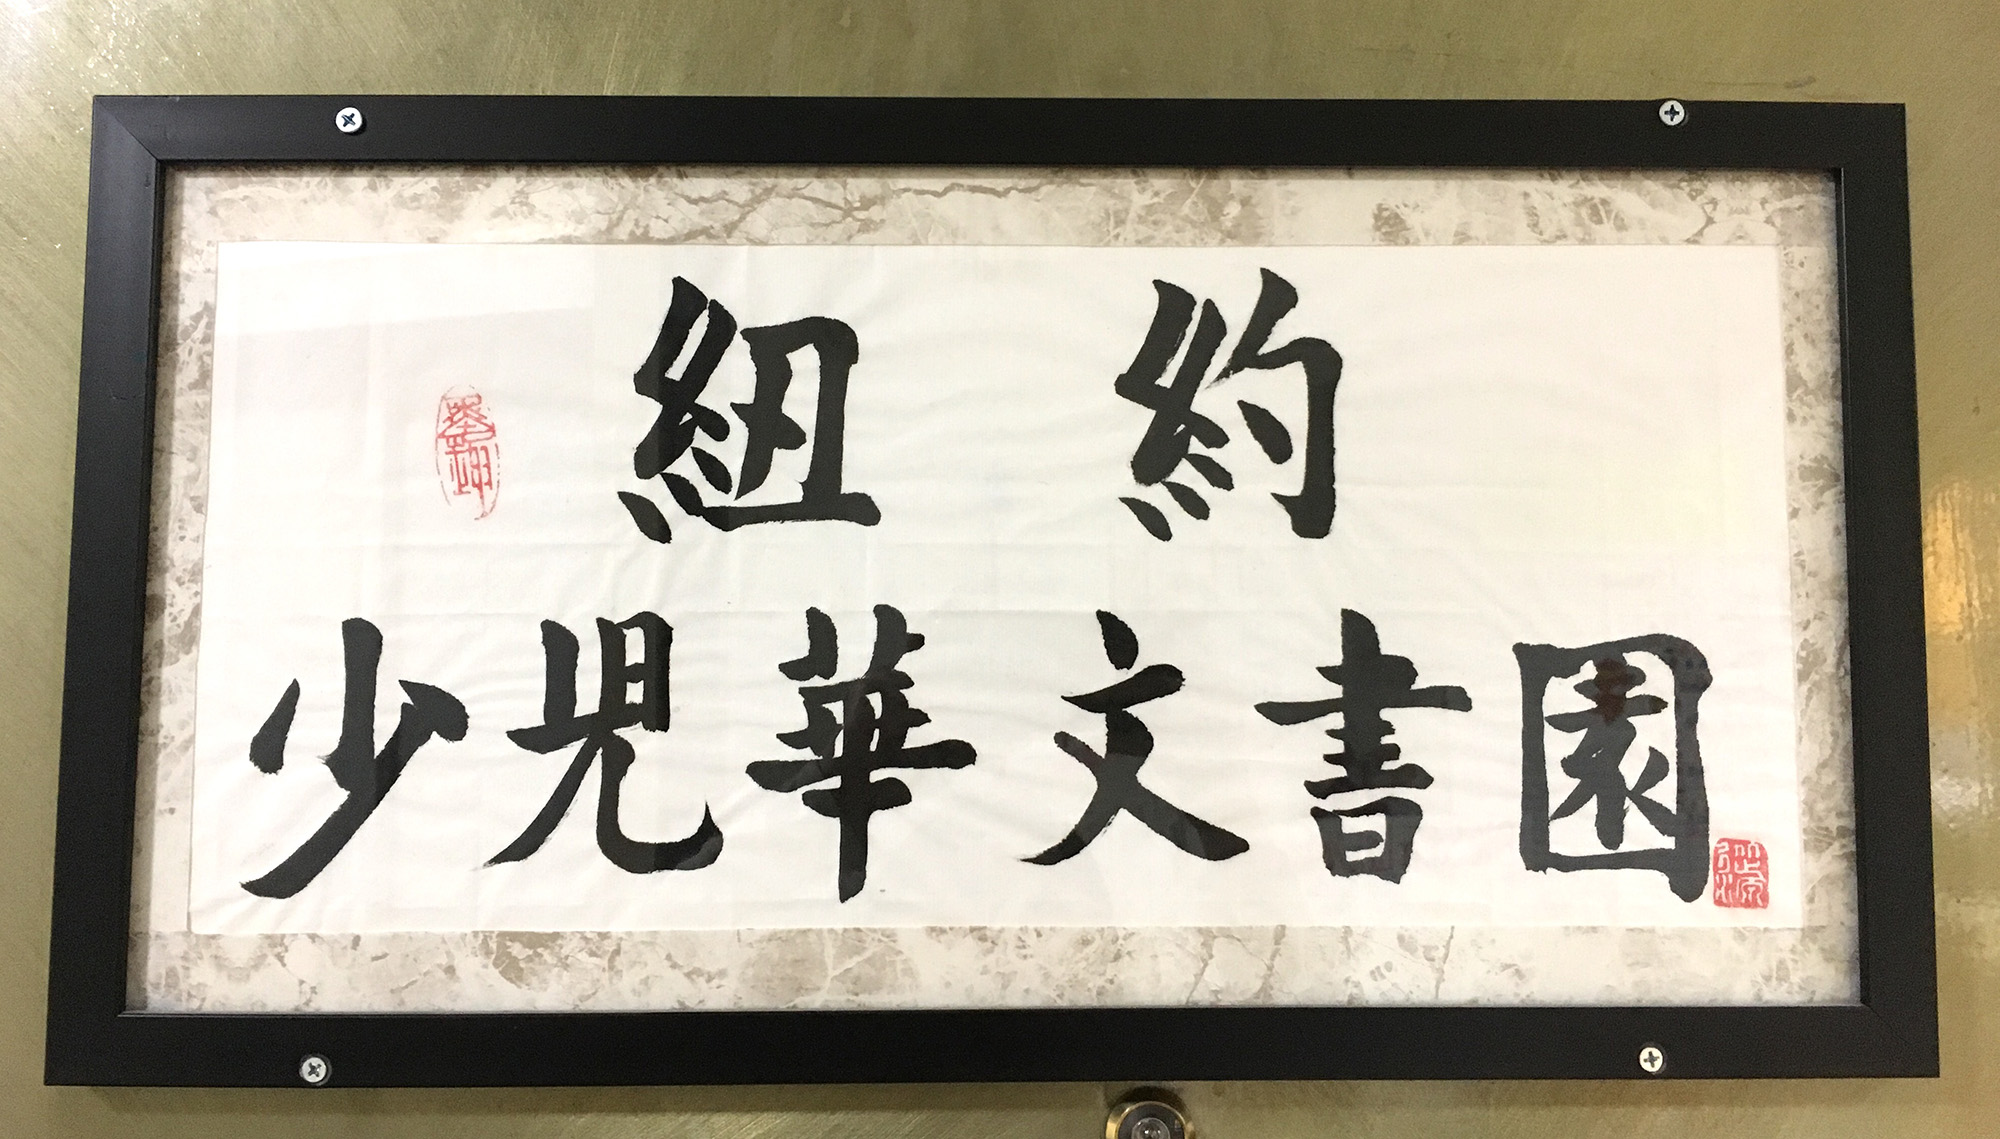 紐約
少兒華文書園